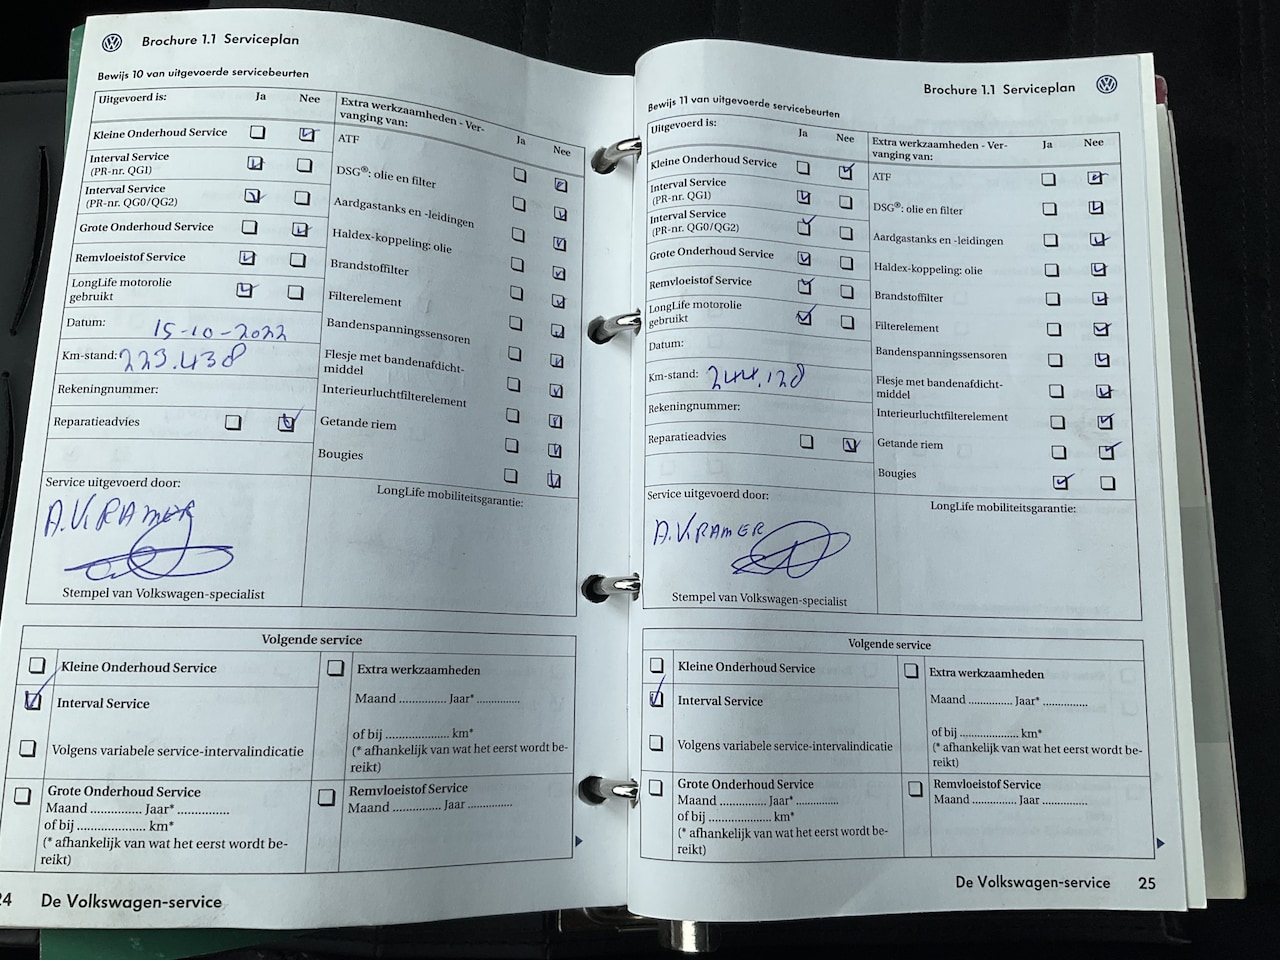 Brochure 1.1 Serviceplan
Bewijs 10 van uitgevoerde servicebeurten
Uitgevoerd is: Ja Nee
Kleine Onderhoud Service
Interval Service
(PR-nr. QG1)
Interval Service
(PR-nr. QG0/QG2)
Grote Onderhoud Service
Remvloeistof Service
LongLife motorolie
gebruikt
Datum: 15-10-2022
Km-stand: 223.438
Rekeningnummer:
Reparatieadvies
Extra werkzaamheden - Ver-
vanging van: Ja Nee
ATF
DSG®: olie en filter
Aardgastanks en -leidingen
Haldex-koppeling: olie
Brandstoffilter
Filterelement
Bandenspanningssensoren
Flesje met bandenafdicht-
middel
Interieurluchtfilterelement
Getande riem
Bougies
Service uitgevoerd door:
A.KRAMER
Stempel van Volkswagen-specialist
LongLife mobiliteitsgarantie:
Volgende service
Kleine Onderhoud Service
Interval Service
Volgens variabele service-intervalindicatie
Extra werkzaamheden
Maand .............. Jaar* .............
of bij ................... km*
(* afhankelijk van wat het eerst wordt be-
reikt)
Grote Onderhoud Service
Maand .............. Jaar* ..............
of bij .................... km*
(* afhankelijk van wat het eerst wordt be-
reikt)
Remvloeistof Service
Maand .............. Jaar .............
24 De Volkswagen-service
Brochure 1.1 Serviceplan
Bewijs 11 van uitgevoerde servicebeurten
Uitgevoerd is: Ja Nee
Kleine Onderhoud Service
Interval Service
(PR-nr. QG1)
Interval Service
(PR-nr. QG0/QG2)
Grote Onderhoud Service
Remvloeistof Service
LongLife motorolie
gebruikt
Datum:
Km-stand: 244.128
Rekeningnummer:
Reparatieadvies
Extra werkzaamheden - Ver-
vanging van: Ja Nee
ATF
DSG®: olie en filter
Aardgastanks en -leidingen
Haldex-koppeling: olie
Brandstoffilter
Filterelement
Bandenspanningssensoren
Flesje met bandenafdicht-
middel
Interieurluchtfilterelement
Getande riem
Bougies
Service uitgevoerd door:
A.KRAMER
Stempel van Volkswagen-specialist
LongLife mobiliteitsgarantie:
Volgende service
Kleine Onderhoud Service
Interval Service
Volgens variabele service-intervalindicatie
Extra werkzaamheden
Maand .............. Jaar* .............
of bij ................... km*
(* afhankelijk van wat het eerst wordt be-
reikt)
Grote Onderhoud Service
Maand .............. Jaar* .............
of bij .................... km*
(* afhankelijk van wat het eerst wordt be-
reikt)
Remvloeistof Service
Maand .............. Jaar .............
De Volkswagen-service 25